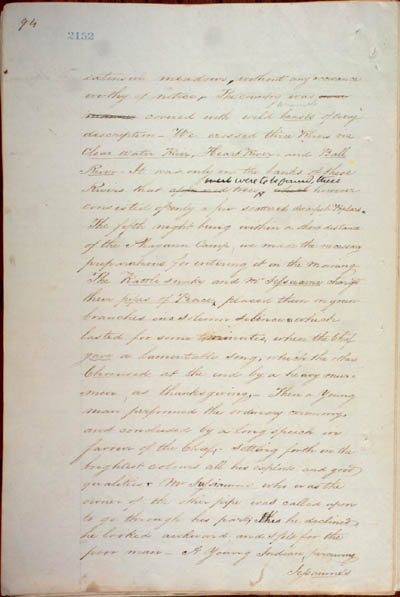 94
2152
extensive meadows, without any occurrence
worthy of notice. The country was
covered with wild beasts of every
description - We crossed three Rivers viz
Clear Water River, Heart River and Ball
River. It was only on the banks of these
wood were to be found, these
Rivers that however
consisted of only a few scattered Poplars.
The fifth night being within a short distance
of the Camp, we made the necessary
preparations for entering it in the morning
The Rattle Snake and Mr Jusseaume
their pipes of Peace, placed them on green
branches in a solemn silence which
lasted for some minutes, when the Chief
gave a lamentable song, which the
Chorused at the end by a heavy mur-
mur, as thanksgiving. - Then a Young
man performed the ordinary ceremony,
and concluded by a long speech in
favour of the Chief, setting forth in the
brightest colours all his exploits and good
qualities. Mr Jusseaume who was the
owner of the other pipe was called upon
to go through his part, this he declined,
he looked awkward, and I felt for the
poor man - A Young Indian, perceiving
Jusseaume's